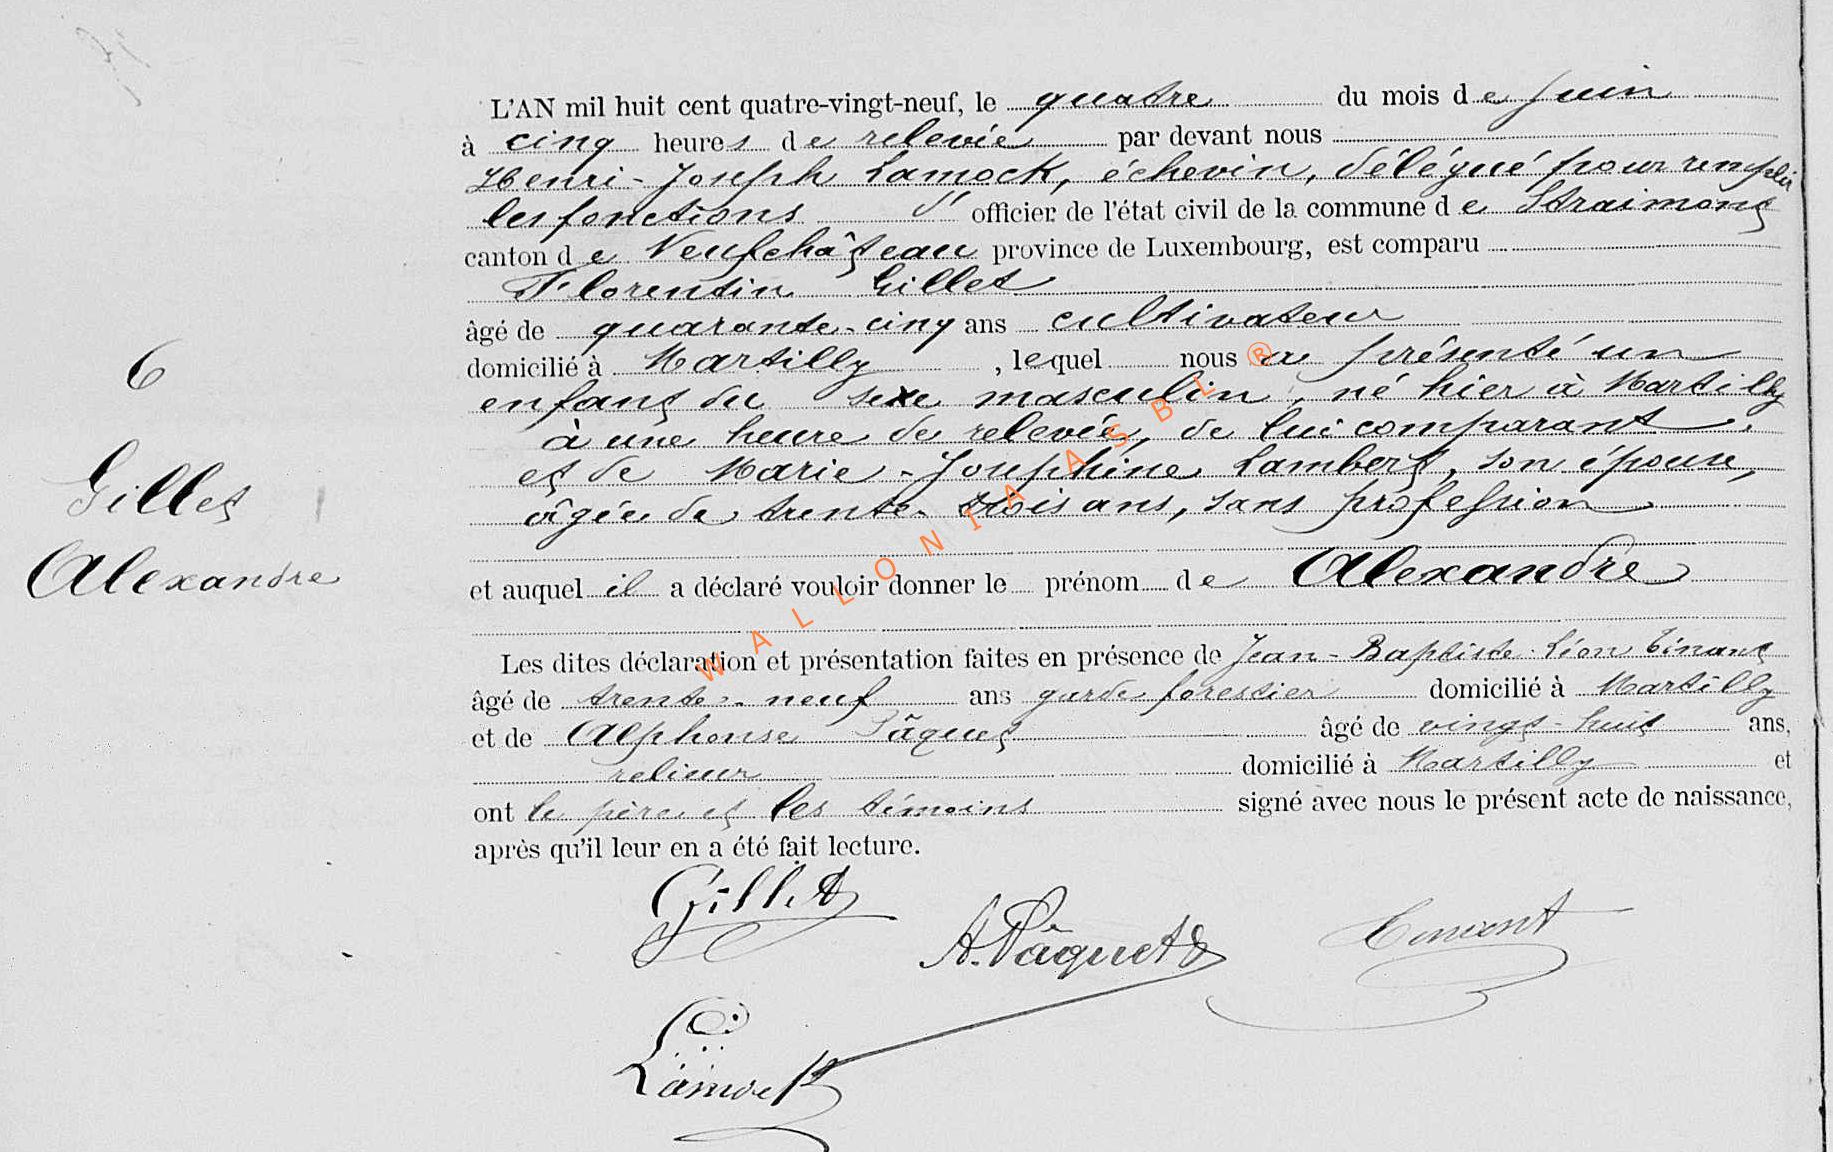 L'AN mil huit cent quatre-vingt-neuf, le quatre du mois de juin
à cinq heures de relevée par devant nous
Henri-Joseph Lamock, échevin, délégué pour remplir
les fonctions d'officier de l'état civil de la commune de Straimont
canton de Neufchâteau province de Luxembourg, est comparu
Florentin Gillet
âgé de quarante-cinq ans cultivateur
domicilié à Martilly , lequel nous a présenté un
enfant du sexe masculin, né hier à Martilly
à une heure de relevée, de lui comparant
et de Marie-Joséphine Lambert, son épouse,
âgée de trente-trois ans, sans profession
6
Gillet
Alexandre
et auquel il a déclaré vouloir donner le prénom de Alexandre
Les dites déclaration et présentation faites en présence de Jean-Baptiste-Léon Tinant
âgé de trente-neuf ans garde forestier domicilié à Martilly
et de Alphonse Pâquet âgé de vingt-huit ans,
relieur domicilié à Martilly et
ont le père et les témoins signé avec nous le présent acte de naissance,
après qu'il leur en a été fait lecture.
Gillet
A. Pâquet
Lamock
WALLONIA ASBL ®